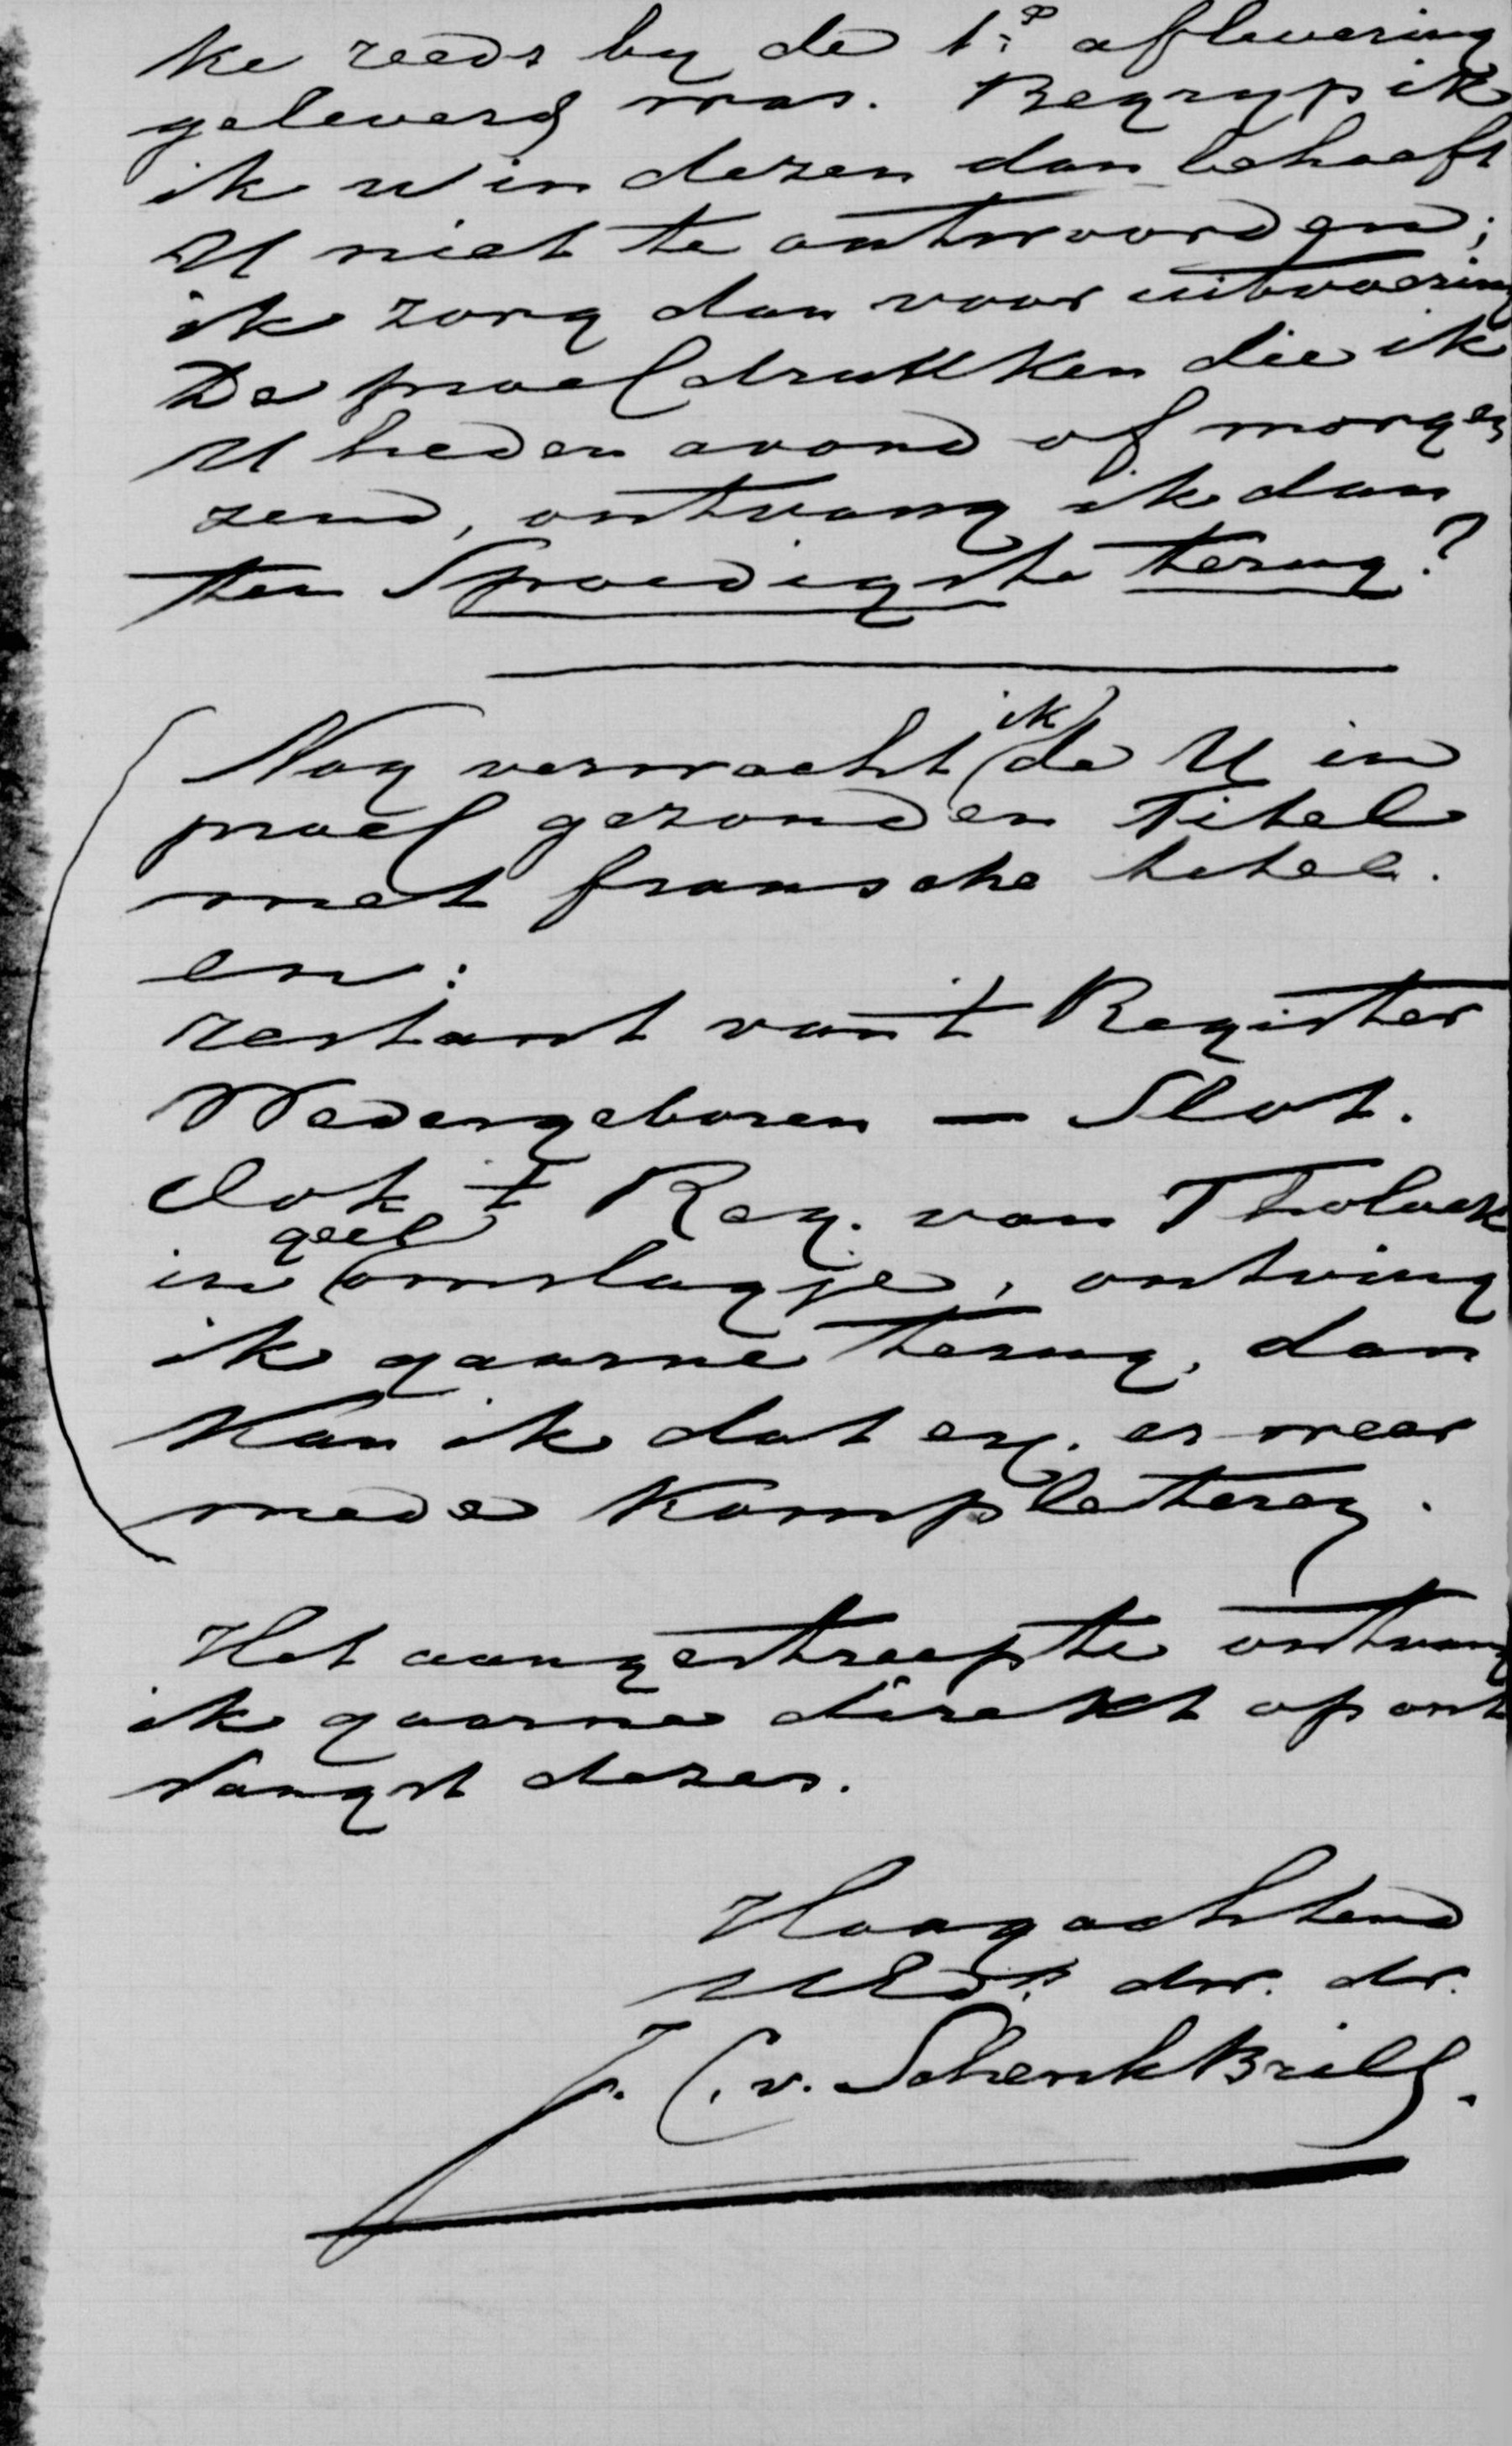 ke reeds by de 1e aflevering
geleverd was. Begryp ik
ik u in dezen dan behoeft
U niet te antwoorden;
ik zorg dan voor uitvoering
De proefdrukken die ik
U heden avond of morgen
zend, ontvang ik dan
ten Spoedigste terug?
Nog verwacht ik de U in
proef gezonden Titel
met fransche titel.
en:
restant van 't Register
Wedergeboren — Slot.
Ook 't Reg. van Tholuck
in geel omslagje, ontving
ik gaarne terug, dan
kan ik dat ex. er weer
mede kompleteren.
Het aangestreepte ontvang
ik gaarne direkt op ont
vangst dezes.
Hoogachtend
UEd. dw. dr.
J. C. v. Schenk Brill.